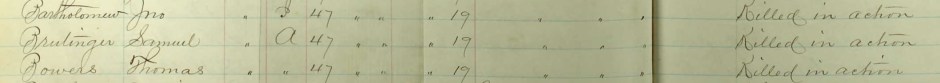 Bartholomew Jno " D 47 " " " 19 " " " Killed in action
Brutinger Samuel " A 47 " " " 19 " " " Killed in action
Bowers Thomas " " 47 " " " 19 " " " Killed in action